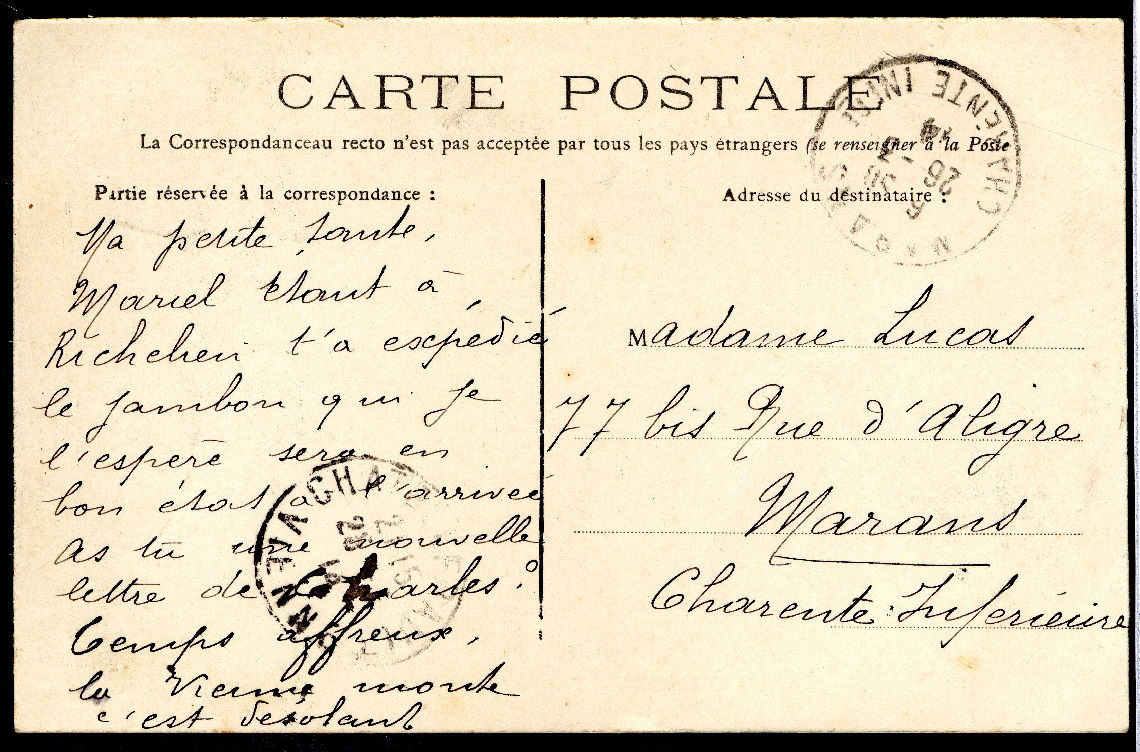 CARTE POSTALE
La Correspondanceau recto n'est pas acceptée par tous les pays étrangers (se renseigner à la Poste
Partie réservée à la correspondance :
Ma petite tante,
Marcel étant à
Richelieu t'a expédié
le jambon qui je
l'espère sera en
bon état à l'arrivée
As tu une nouvelle
lettre de Charles ?
Temps affreux,
la Vienne monte
c'est désolant
Adresse du destinataire :
Madame Lucas
77 bis Rue d'Aligre
Marans
Charente Inférieure
MARANS
CHARENTE INFRE
26 - 5
VIENNE